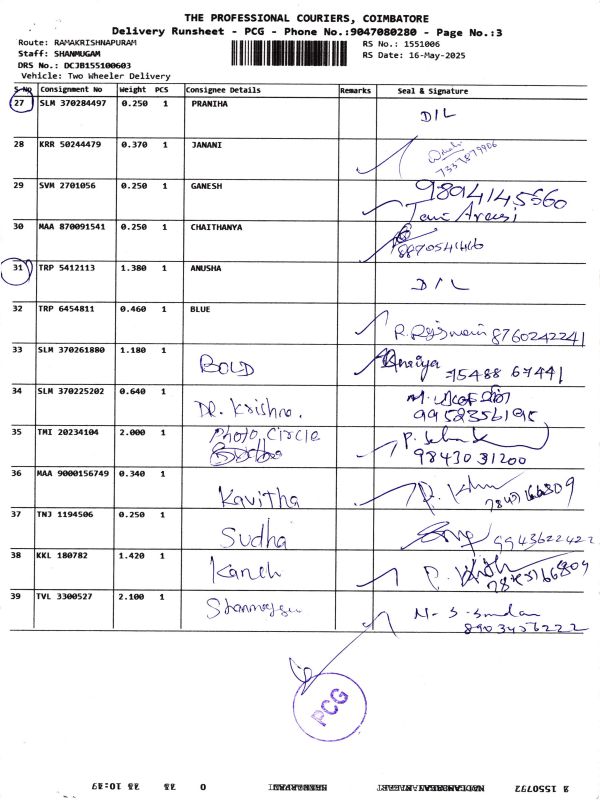 THE PROFESSIONAL COURIERS, COIMBATORE
Delivery Runsheet - PCG - Phone No.:9047080280 - Page No.:3
Route: RAMAKRISHNAPURAM
RS No.: 1551006
Staff: SHANMUGAM
RS Date: 16-May-2025
DRS No.: DCJB155100603
Vehicle: Two Wheeler Delivery
S No Consignment No Weight PCS Consignee Details Remarks Seal & Signature
27 SLM 370284497 0.250 1 PRANIHA D/L
28 KRR 50244479 0.370 1 JANANI 7357879906
29 SVM 2701056 0.250 1 GANESH 9894145560
30 MAA 870091541 0.250 1 CHAITHANYA 8870541466
31 TRP 5412113 1.380 1 ANUSHA D/L
32 TRP 6454811 0.460 1 BLUE 8760242241
33 SLM 370261880 1.180 1 BOLD 75488 67441
34 SLM 370225202 0.640 1 DR. Krishna. 9952356195
35 TMI 20234104 2.000 1 Photo Circle 98430 31200
36 MAA 9000156749 0.340 1 Kavitha
37 TNJ 1194506 0.250 1 Sudha 9943622422
38 KKL 180782 1.420 1
39 TVL 3300527 2.100 1 8903456222
PCG